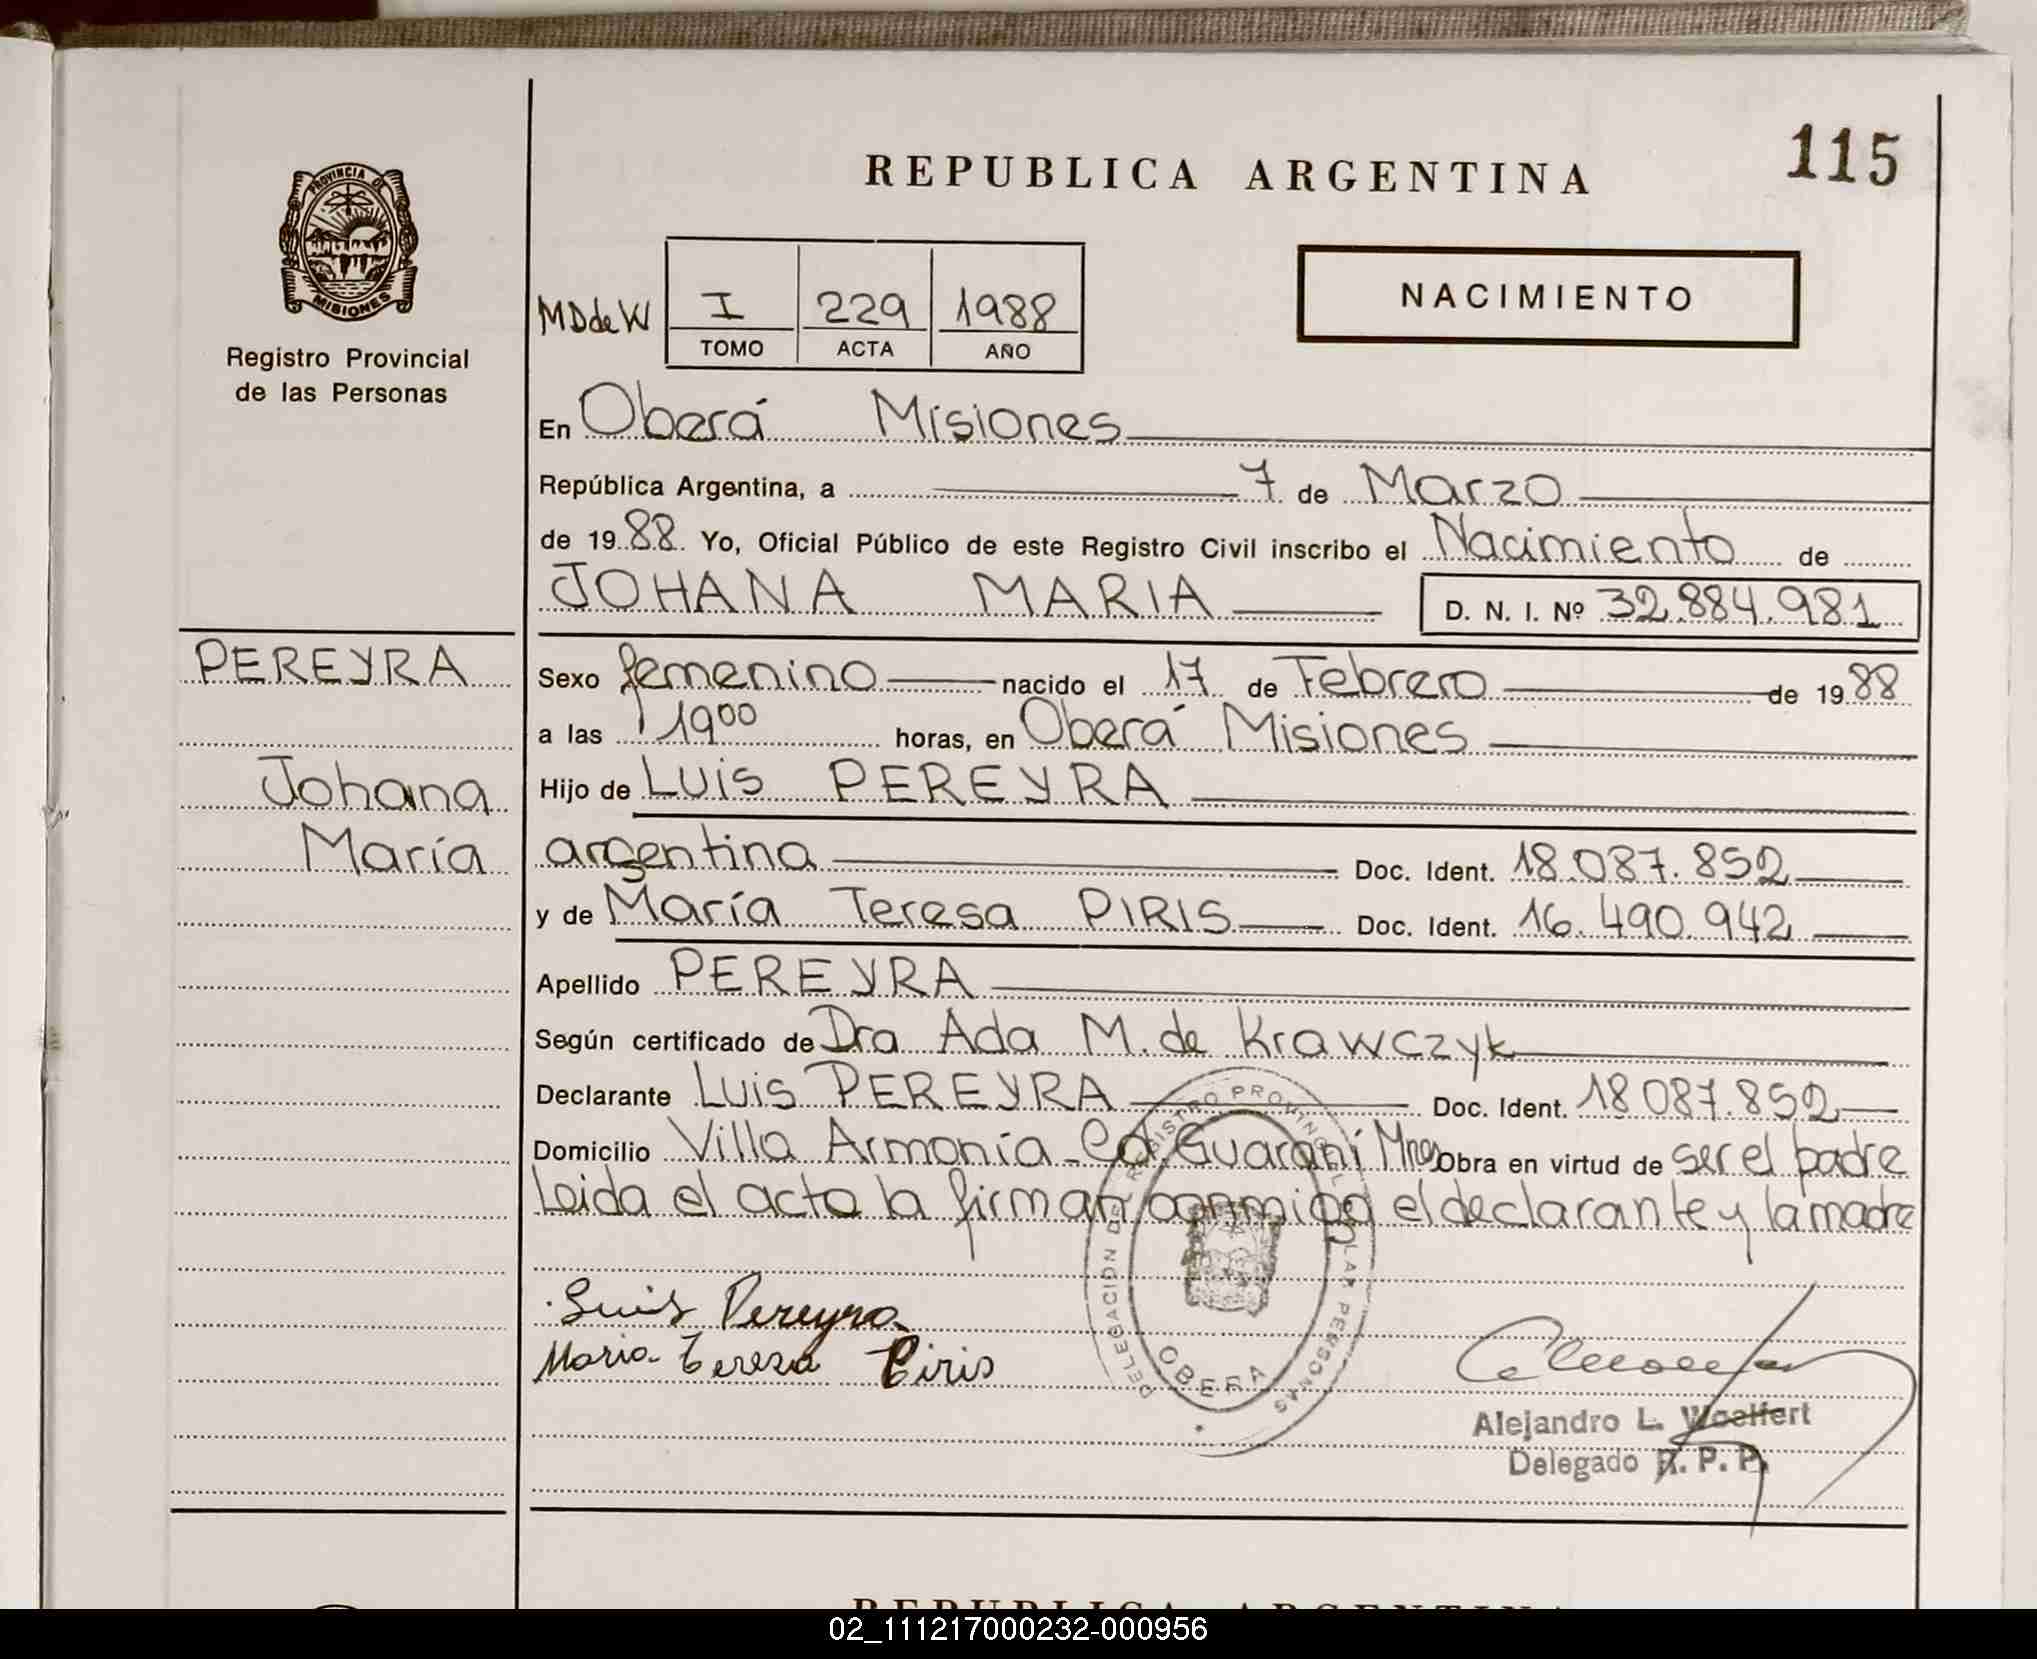 REPUBLICA ARGENTINA
115
PROVINCIA DE
MISIONES
Registro Provincial
de las Personas
MDdeW
I 229 1988
TOMO ACTA AÑO
NACIMIENTO
En Oberá Misiones
República Argentina, a 7 de Marzo
de 1988 Yo, Oficial Público de este Registro Civil inscribo el Nacimiento de
JOHANA MARIA D. N. I. Nº 32.884.981
PEREYRA
Johana
María
Sexo femenino nacido el 17 de Febrero de 1988
a las 1900 horas, en Oberá Misiones
Hijo de Luis PEREYRA
argentina Doc. Ident. 18.087.852
y de María Teresa PIRIS Doc. Ident. 16.490.942
Apellido PEREYRA
Según certificado de Dra Ada M. de Krawczyk
Declarante Luis PEREYRA Doc. Ident. 18087.852
Domicilio Villa Armonía Cd. Guaraní Mnes Obra en virtud de ser el padre
Leida el acta la firman conmigo el declarante y la madre
Luis Pereyra
Maria Tereza Piris
DELEGACION DE REGISTRO PROVINCIAL LAS PERSONAS
OBERA
Alejandro L. Woelfert
Delegado R. P. P.
REPUBLICA ARGENTINA
02_111217000232-000956